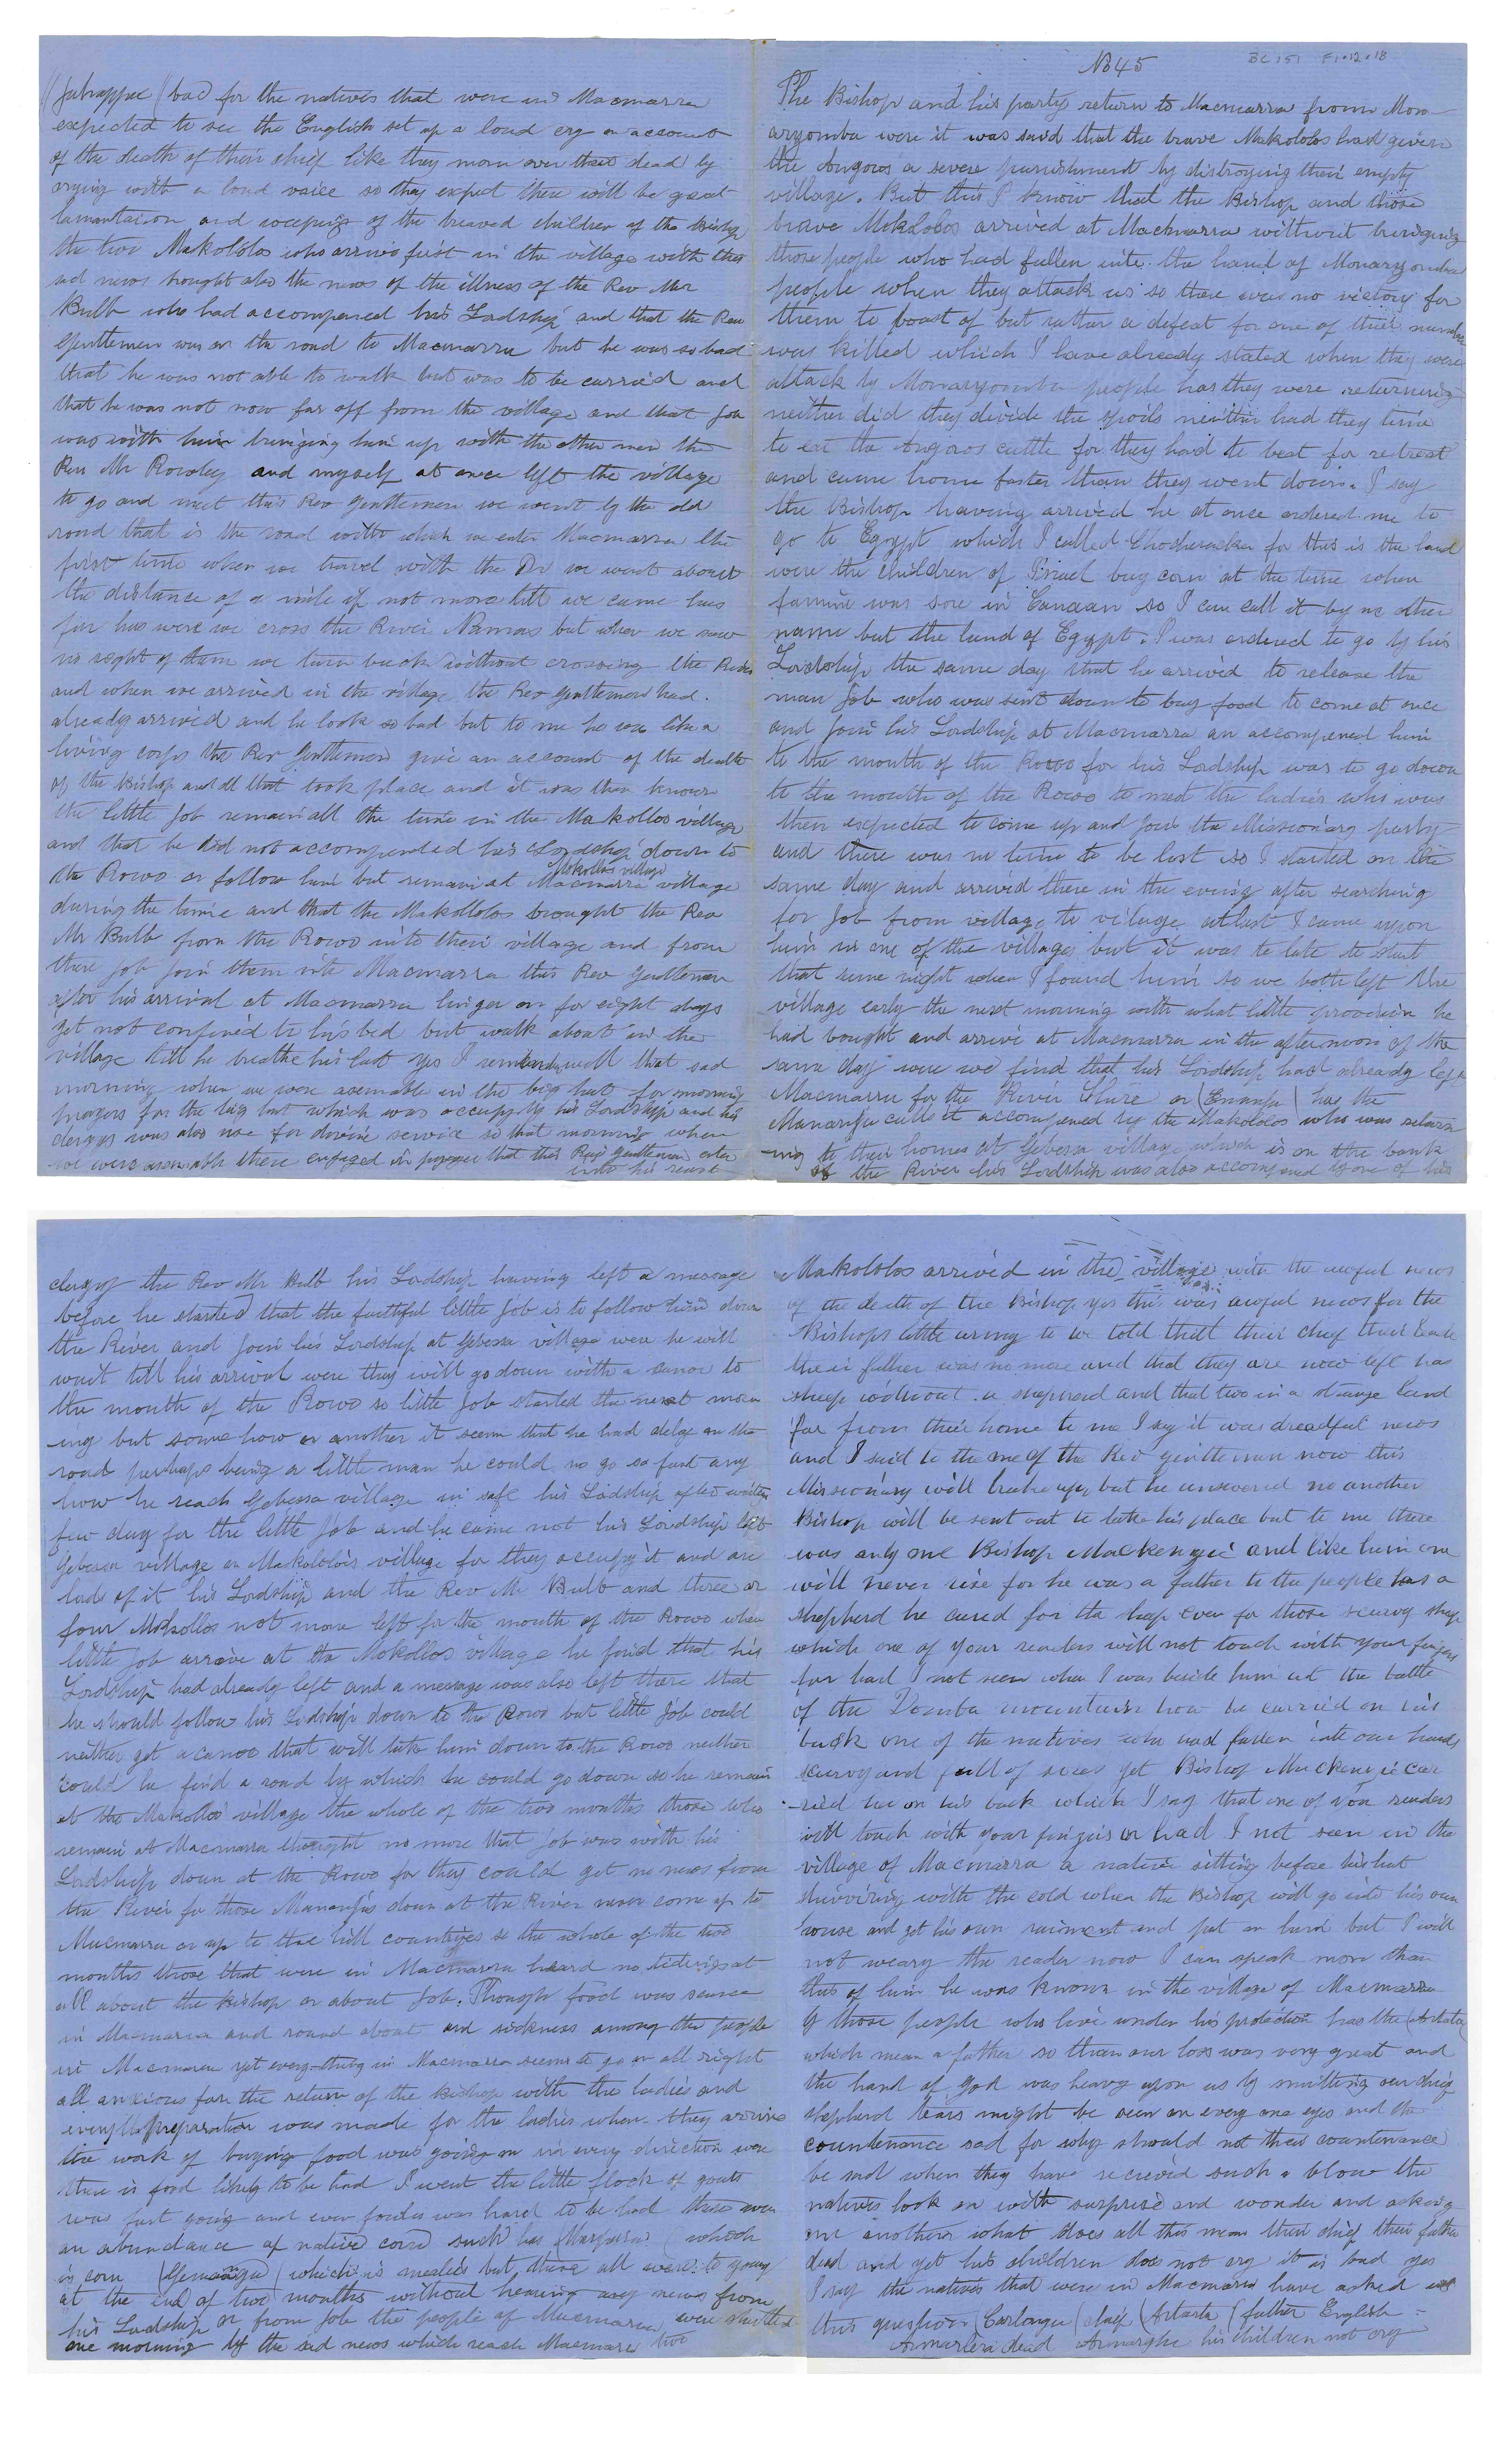 No 45
BC 151 F1.12.18
The Bishop and his party return to Macmarra from Mon-
aryomba were it was said that the brave Makololos had given
the Angoros a severe punishment by distroying their empty
village. But this I know that the Bishop and those
brave Mokololos arrived at Macmarra without bringing
those people who had fullen into the hand of Monaryomba
people when they attack us so there was no victory for
them to boast of but rather a defeat for one of their number
was killed which I have already stated when they were
attack by Monaryomba people has they were returning
neither did they divide the spoils neither had they time
to eat the Angoros cattle for they had to beat for retreat
and came home faster than they went down. I say
the Bishop having arrived he at once ordered me to
go to Egypt which I called for this is the land
were the children of Isriel buy corn at the time when
famine was sore in Canaan so I can call it by no other
name but the land of Egypt. I was ordered to go by his
Lordship the same day that he arrived to release the
man Job who was sent down to buy food to come at once
and join his Lordship at Macmarra an accompened him
to the mouth of the Rowo for his Lordship was to go down
to the mouth of the Rowo to meet the ladies who was
then expected to come up and join the Missionary party
and there was no time to be lost so I started on the
same day and arrived there in the evening after searching
for Job from village to village atlast I came upon
him in one of the villages but it was to late to start
that same night when I found him so we both left the
village early the next morning with what little provision he
had bought and arrive at Macmarra in the afternoon of the
same day were we find that his Lordship had already left
Macmarra for the River Shire or ( ) has the
Mananja call it accompened by the Makololos who was return
-ing to their homes at Gebessa village which is on the bank
of the River his Lordship was also accompened by one of his
clergy the Rev Mr Bulb his Lordship having left a message
before he started that the faithful little Job is to follow him down
the River and join his Lordship at Gebessa village were he will
wait till his arrival were they will go down with a canoe to
the mouth of the Rowo so little Job started the next morn
-ing but some how or another it seem that he had delay on the
road perhaps being a little man he could no go so fast any
how he reach Gebessa village in safe his Lordship after waiting
few day for the little Job and he came not his Lordship left
Gebessa village or Makololos village for they occupy it and are
lords of it his Lordship and the Rev Mr Bulb and three or
four Makollos not more left for the mouth of the Rowo when
little Job arrive at the Mokollos village he find that his
Lordship had already left and a message was also left there that
he should follow his Lordship down to the Rowo but little Job could
neither get a canoe that will take him down to the Rowo neither
could he find a road by which he could go down so he remain
at the Makollos village the whole of the two months those who
remain at Macmarra thought no more that Job was with his
Lordship down at the Rowo for they could get no news from
the River for those Mananjas down at the River never come up to
Macmarra or up to the hill countries so the whole of the two
months those that were in Macmarra heard no tidings at
all about the Bishop or about Job. Though food was scarce
in Macmarra and round about and sickness among the people
in Macmarra yet every-thing in Macmarra seem to go on all right
all anxious for the return of the Bishop with the ladies and
every preparation was made for the ladies when they arrive
the work of buying food was going on in every direction were
there is food likely to be had I went the little flock of goats
was fast going and even fowls was hard to be had there was
an abundance of native corn such has ( ) which
is corn ( ) which is mealies but these all were to young
at the end of two months without hearing any news from
his Lordship or from Job the people of Macmarra were startled
one morning by the sad news which reach Macmarra two
Makololos arrived in the village with the awful news
of the death of the Bishop yes this was awful news for the
Bishops little army to be told that their chief their leader
their father was no more and that they are now left has
sheep without a sheperd and that two in a strange land
far from their home to me I say it was dreadful news
and I said to the one of the Rev gentleman now this
Missionary will brake up, but he answered no another
Bishop will be sent out to take his place but to me there
was only one Bishop Mackenzie and like him one
will never rise for he was a father to the people has a
shepherd he cared for the sheep even for those scurvy sheep
which one of your readers will not touch with your fingers
for had I not seen when I was beside him at the battle
of the Zomba mountain how he carried on his
back one of the natives who had fallen into our hands
scurvy and full of sores yet Bishop Mackenzie car
-ried him on his back which I say that one of you readers
will touch with your fingers or had I not seen in the
village of Macmarra a native sitting before his hut
shivviring with the cold when the Bishop will go into his own
house and get his own raiment and put on him but I will
not weary the reader now I can speak more than
this of him he was known in the village of Macmarra
by those people who live under his protection has the (Artata)
which mean a father so then our loss was very great and
the hand of God was heavy upon us by smitting our chief
shepherd tears might be seen on every one eyes and the
countenance sad for why should not their countenance
be sad when they have recieved such a blow the
natives look on with surprise and wonder and asking
one another what does all this mean their chief their father
dead and yet his children does not cry it is bad yes
I say the natives that were in Macmarra have asked
this question (Carlonga) chief (Artarta) father English
Armarlera dead Armarghe his children not cry
(Jutrappa) bad for the natives that were in Macmarra
expected to see the English set up a loud cry on account
of the death of their chief like they morn over their dead by
crying with a loud voice so they expect there will be great
lamantation and weeping of the breaved children of the Bishop
the two Makololos who arrive first in the village with this
sad news brought also the news of the illness of the Rev Mr
Bulb who had accompened his Lordship and that the Rev
gentleman was on the road to Macmarra but he was so bad
that he was not able to walk but was to be carried and
that he was not now far off from the village and that Job
was with him bringing him up with the other men the
Rev Mr Rowley and myself at once left the village
to go and meet this Rev gentleman we went by the old
road that is the road with which we enter Macmarra the
first time when we travel with the Dr we went about
the distance of a mile if not more till we came has
far has were we cross the River Namas but when we saw
no sight of them we turn back without crossing the River
and when we arrived in the village the Rev gentleman had
already arrived and he look so bad but to me he was like a
living corps the Rev gentleman give an account of the death
of the Bishop and all that took place and it was then known
the little Job remain all the time in the Makollos village
and that he did not accompented his Lordship down to
the Rowo or follow him but remain at Macmarra village
Mokollos village
during the time and that the Makollolos brought the Rev
Mr Bulb from the Rowo into their village and from
there Job join them into Macmarra this Rev gentleman
after his arrival at Macmarra linger on for eight days
yet not confined to his bed but walk about in the
village till he breathe his last yes I remember well that sad
morning when we were asemable in the big hut for morning
prayers for the big hut which was occupy by his Lordship and his
clergy was also use for divine service so that morning when
we were asemable there engaged in prayer that this Rev gentleman enter
into his rest